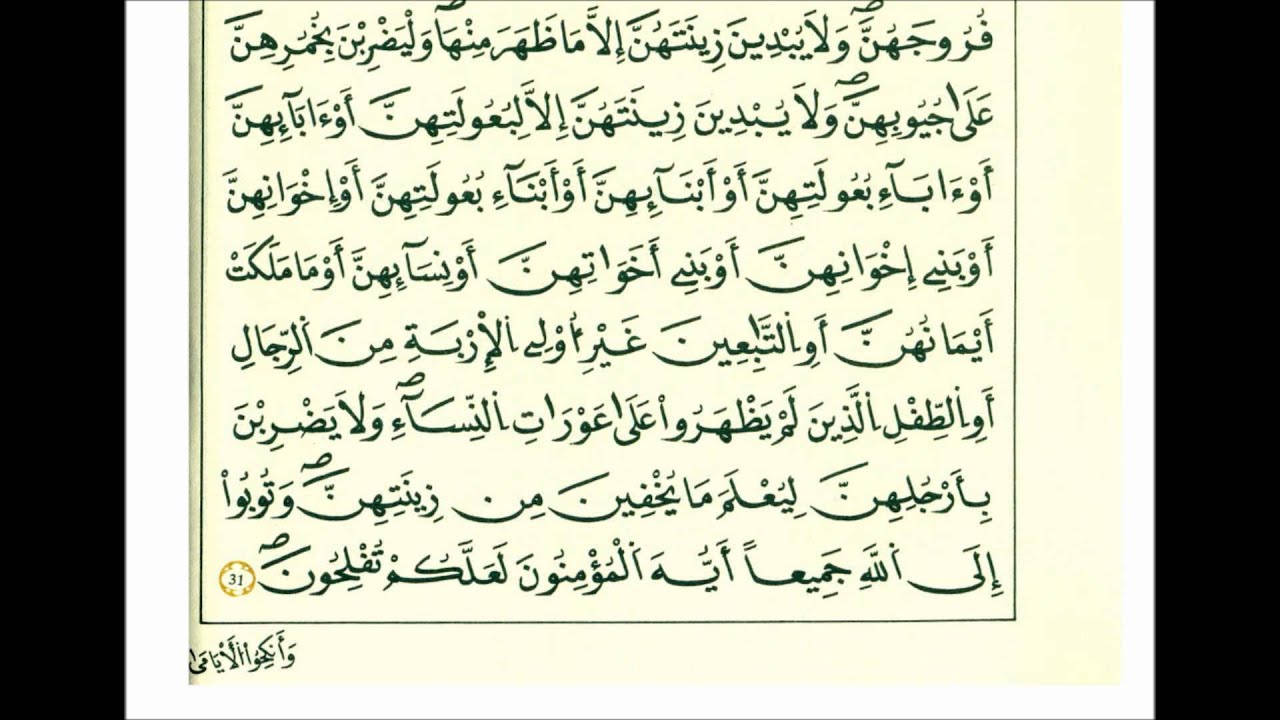 فُرُوجَهُنَّۖ وَلَا يُبْدِينَ زِينَتَهُنَّ إِلَّا مَا ظَهَرَ مِنْهَاۖ وَلْيَضْرِبْنَ بِخُمُرِهِنَّ
عَلَىٰ جُيُوبِهِنَّۖ وَلَا يُبْدِينَ زِينَتَهُنَّ إِلَّا لِبُعُولَتِهِنَّ أَوَ ابَآئِهِنَّ
أَوَ ابَآءِ بُعُولَتِهِنَّ أَوَ اَبْنَآئِهِنَّ أَوَ اَبْنَآءِ بُعُولَتِهِنَّ أَوِ اِخْوَانِهِنَّ
أَوْ بَنِے إِخْوَانِهِنَّ أَوْ بَنِے أَخَوَاتِهِنَّ أَوْ نِسَآئِهِنَّ أَوْ مَا مَلَكَتَ
أَيْمَانُهُنَّ أَوِ التَّٰبِعِينَ غَيْرِ أُوْلِے اِلْإِرْبَةِ مِنَ اَلرِّجَالِ
أَوِ اِلطِّفْلِ اِلذِينَ لَمْ يَظْهَرُواْ عَلَىٰ عَوْرَاتِ اِلنِّسَآءِۖ وَلَا يَضْرِبْنَ
بِأَرْجُلِهِنَّ لِيُعْلَمَ مَا يُخْفِينَ مِن زِينَتِهِنَّۖ وَتُوبُواْ
إِلَى اَللَّهِ جَمِيعاً أَيُّهَ اَلْمُؤْمِنُونَ لَعَلَّكُمْ تُفْلِحُونَۖ 31
وَأَنكِحُواْ اُلْأَيَامَىٰ